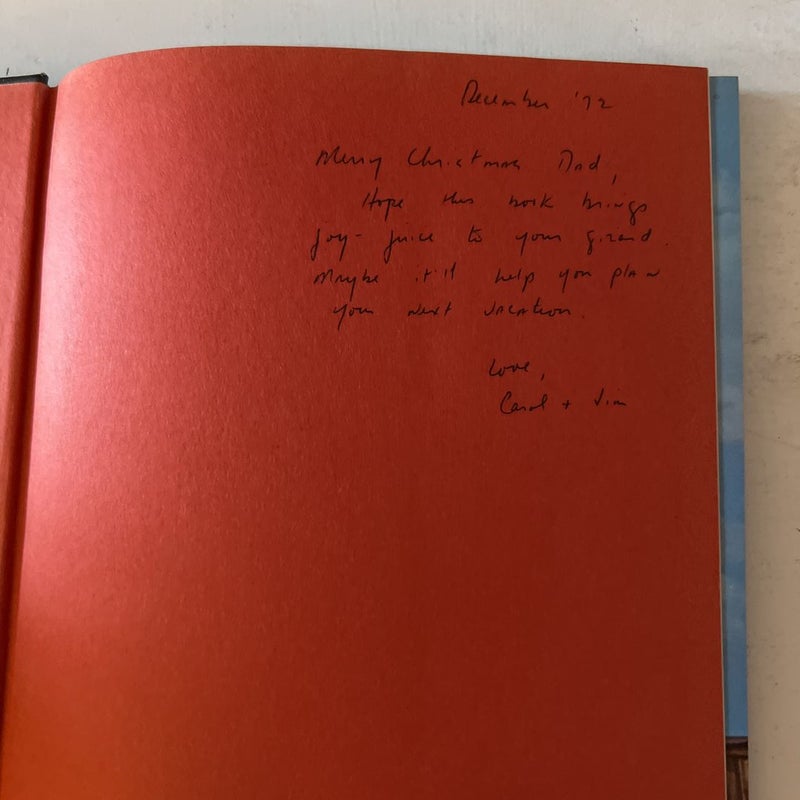 December '72
Merry Christmas Dad,
Hope this book brings
joy-juice to your gizard.
Maybe it'll help you plan
your next vacation.
Love,
Carol + Jim